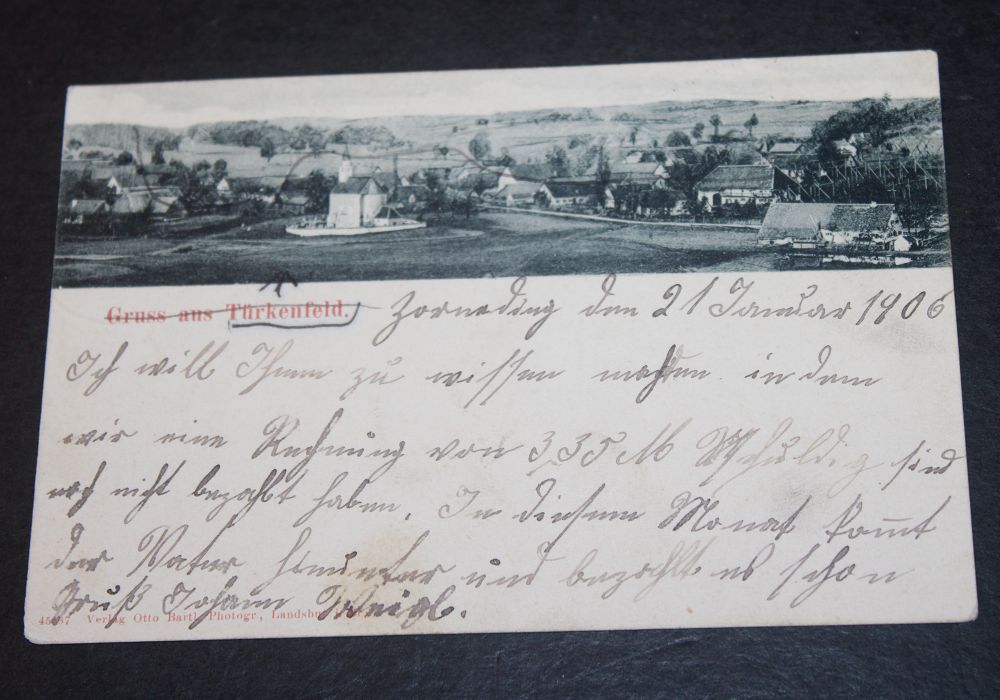 Gruss aus Türkenfeld.
Zorneding den 21 Januar 1906
Ich will Ihnen zu wissen machen in dem
wir eine Rechnung von 335 M Schuldig sind
noch nicht bezahlt haben. In diesem Monat komt
der Vater hinunter und bezahlt es schon
Gruß Johann Weigl.
Verlag Otto Barth Photogr., Landshut